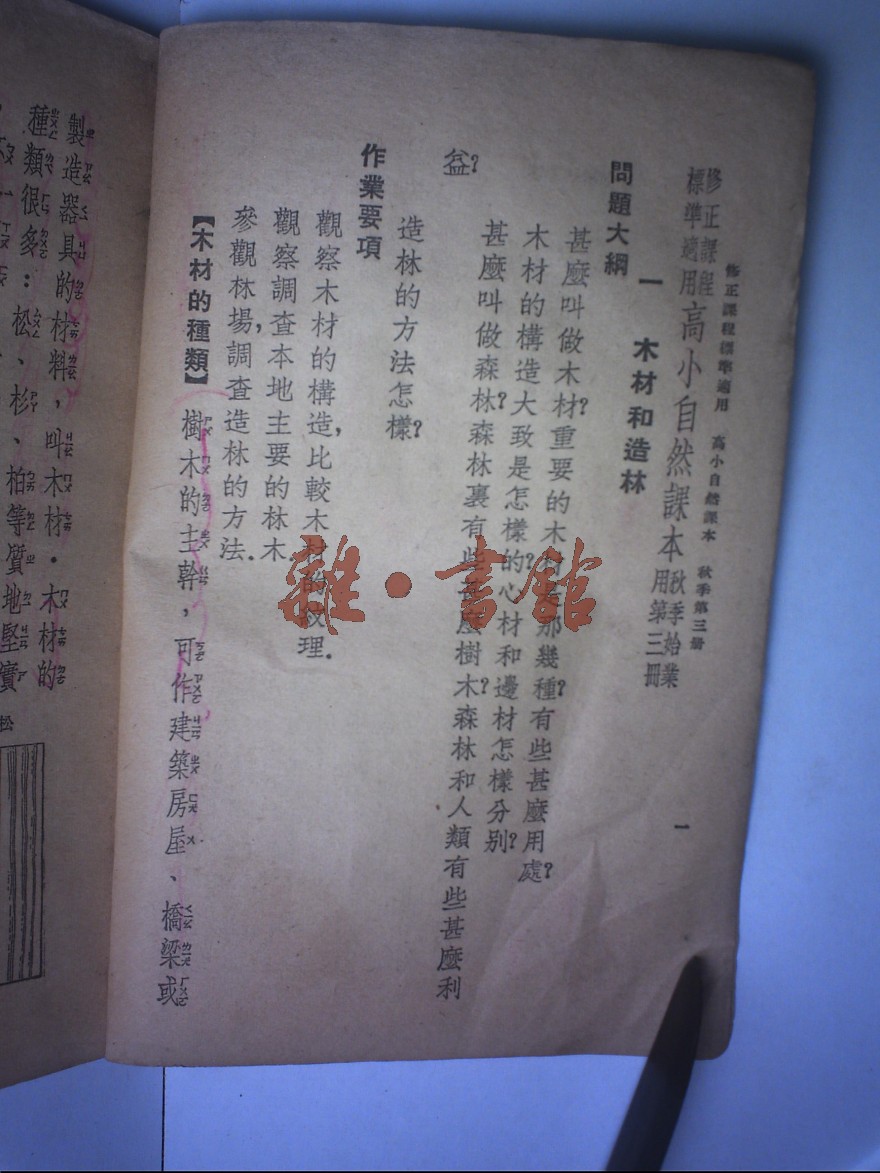 修正課程標準適用 高小自然課本 秋季第三册
一
修正課程
標準適用
高小自然課本
秋季始業
用第三冊
一 木材和造林
問題大綱
甚麼叫做木材?重要的木材有那幾種?有些甚麼用處?
木材的構造大致是怎樣的?心材和邊材怎樣分别?
甚麼叫做森林?森林裏有些甚麼樹木?森林和人類有些甚麼利
益?
造林的方法怎樣?
作業要項
觀察木材的構造,比較木材的紋理.
觀察調查本地主要的林木.
參觀林場,調查造林的方法.
【木材的種類】 樹木的主幹,可作建築房屋、橋梁或
製造器具的材料,叫木材.木材的
種類很多:松、杉、柏等質地堅實
松
雜·書館